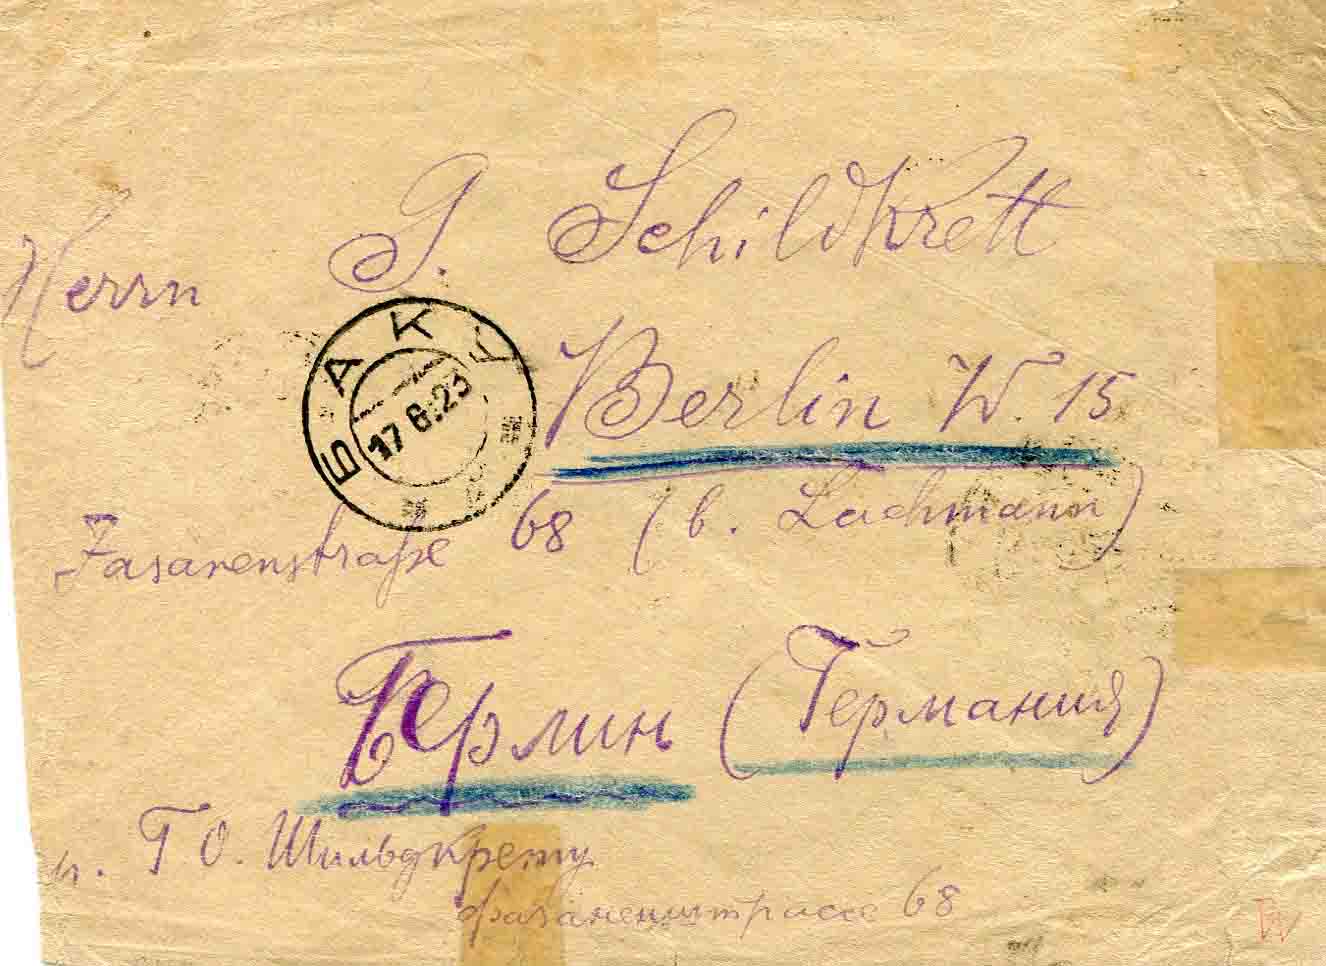 Herrn G. Schildkrett
БАКУ
17 6.23
Berlin W. 15
Fasanenstraße 68 (b. Lachmann)
Берлин (Германия)
Г О. Шильдкрету
Фазаненштрассе 68